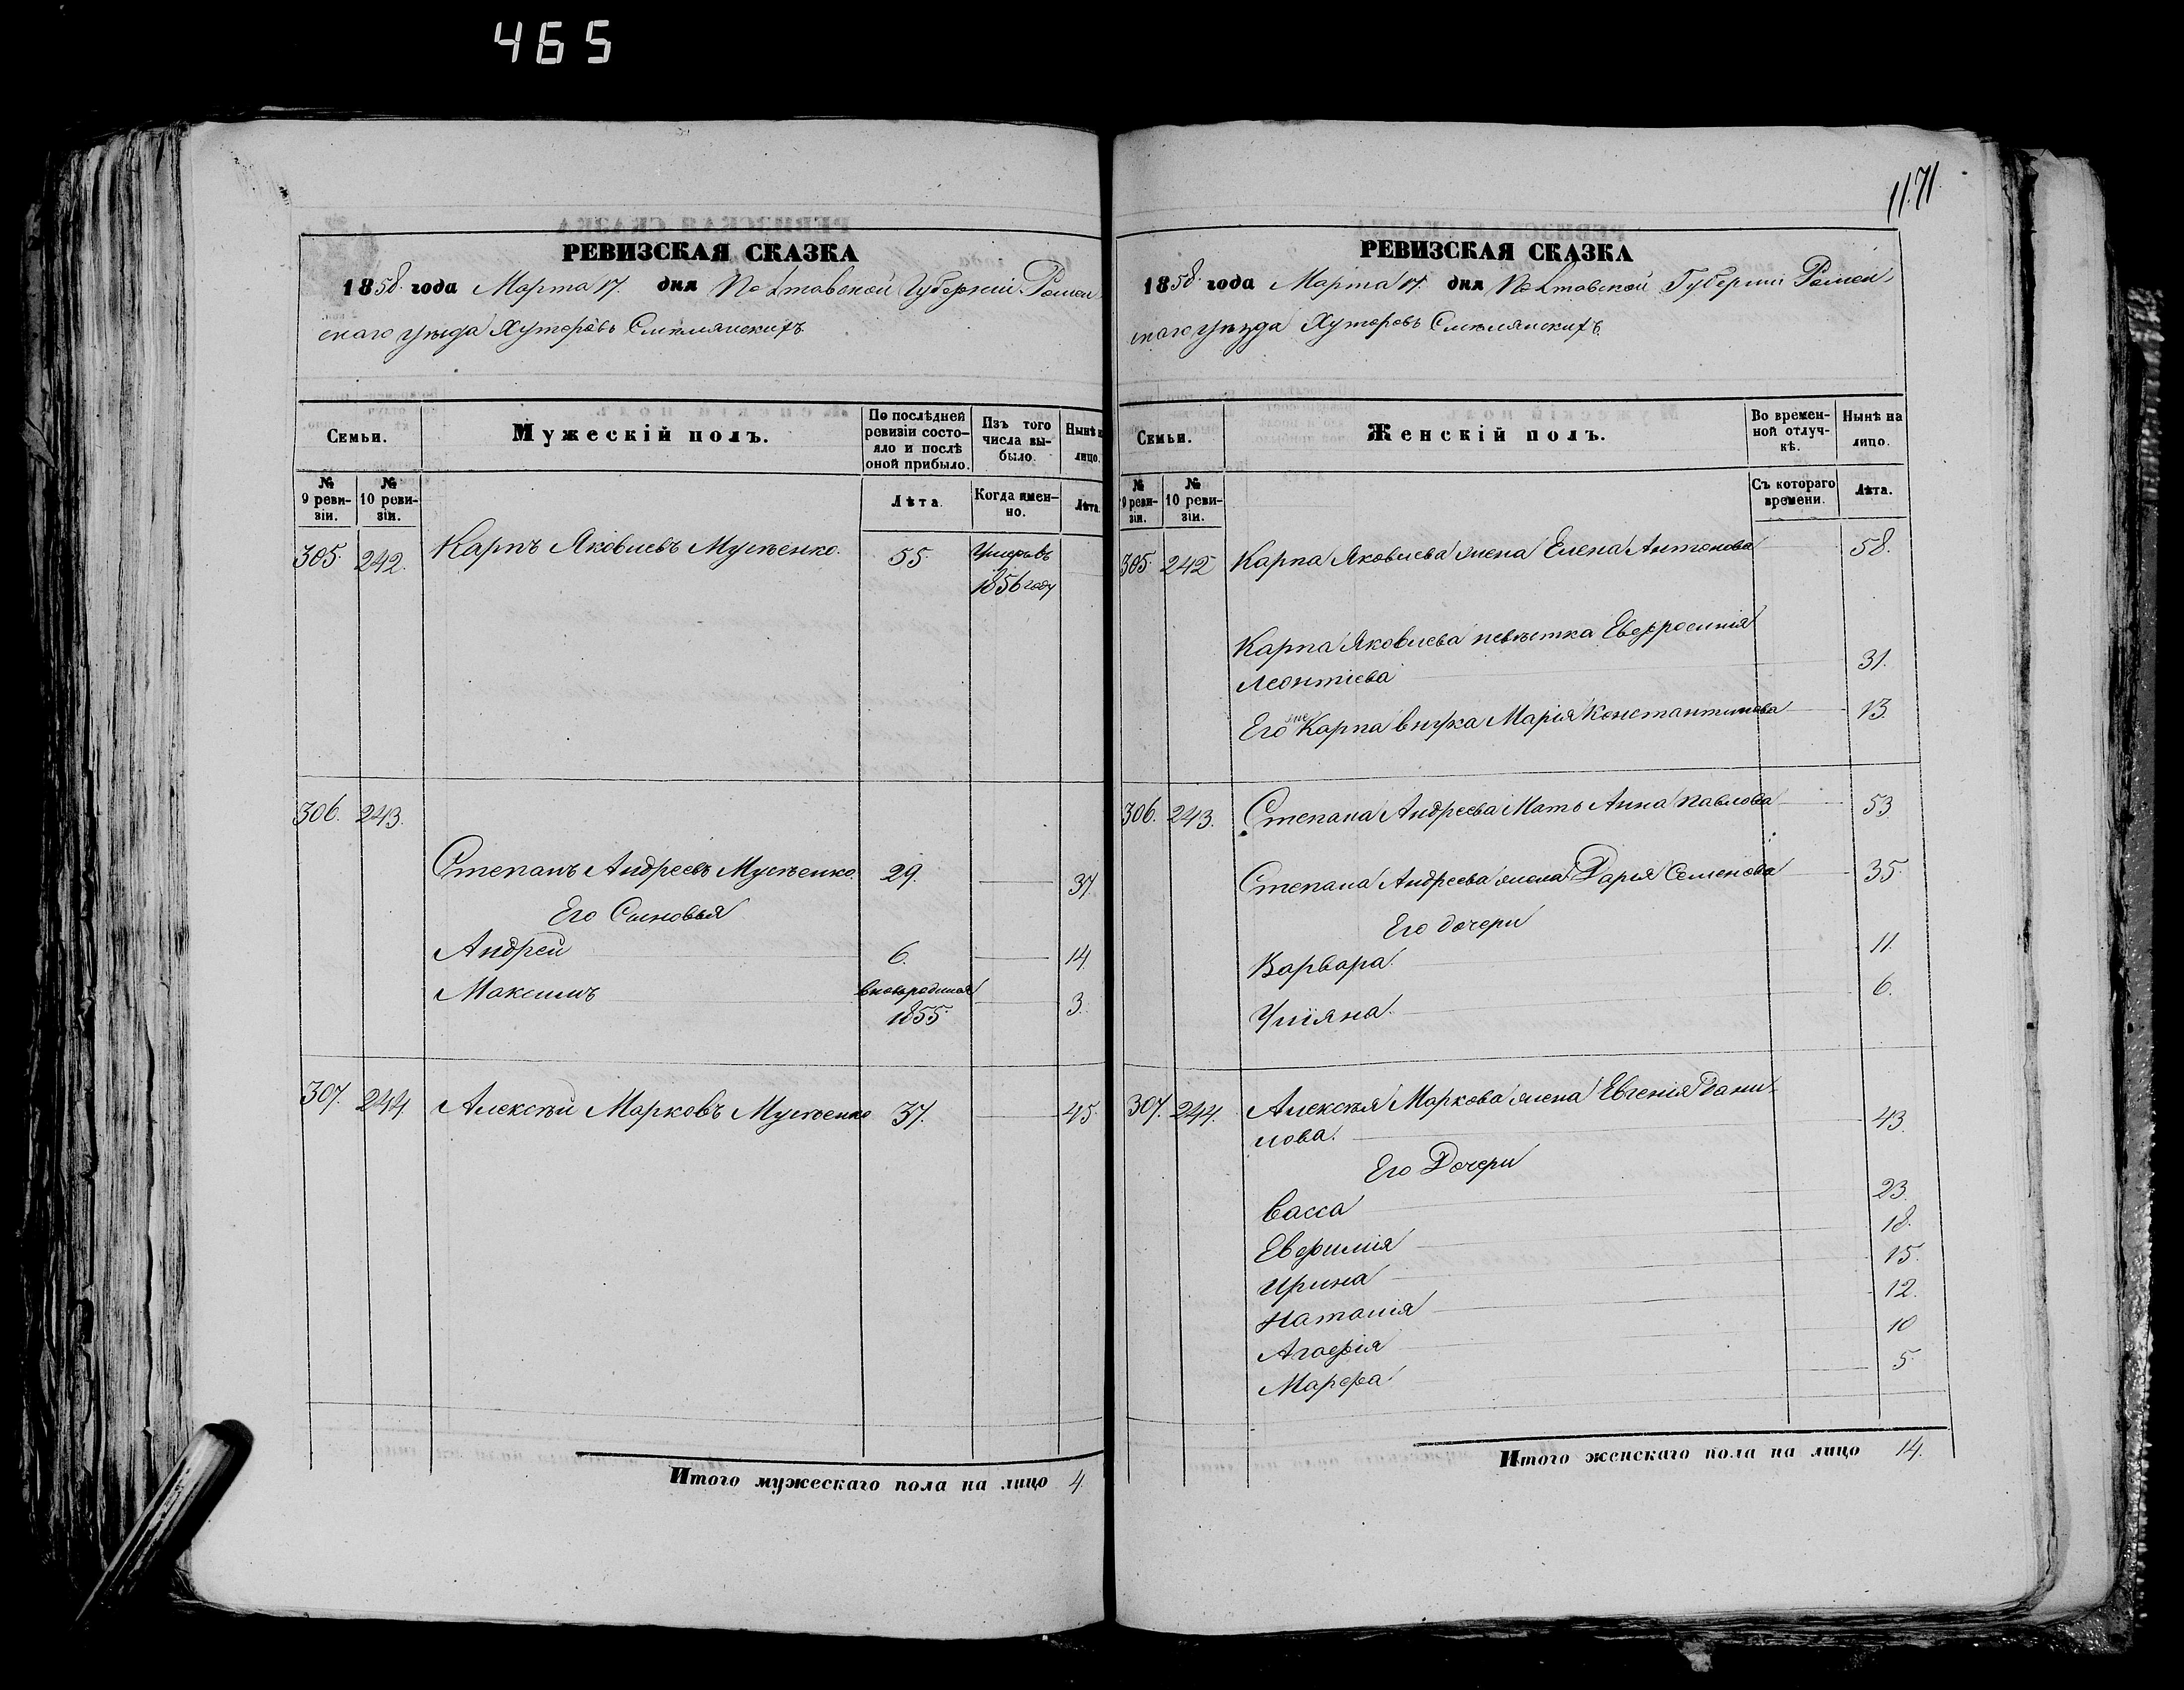 465
РЕВИЗСКАЯ СКАЗКА
1858 года Марта 17. дня Полтавской Губернии Ромен-
скаго уѣзда Хуторовъ Смѣлянскихъ
Семьи.
Мужескій полъ.
По послѣдней ревизіи состояло и послѣ оной прибыло.
Изъ того числа выбыло.
Нынѣ
лицо.
№ 9 ревизіи.
№ 10 ревизіи.
Лѣта.
Когда именно.
Лѣта.
305. 242. Карпъ Яковлевъ Мусѣенко. 55. Умеръ въ
1856 году
306. 243.
Степанъ Андреевъ Мусѣенко. 29. 37.
Его Сыновья
Андрей 6. 14.
Максимъ вновьродился 3.
1855.
307. 244 Алексѣй Марковъ Мусѣенко 37. 45.
Итого мужескаго пола на лицо 4.
1171.
РЕВИЗСКАЯ СКАЗКА
1858. года Марта 17. дня Полтавской Губерніи Ромен-
скаго уѣзда Хуторовъ Смѣлянскихъ.
Семьи.
Женскій полъ.
Во временной отлучкѣ.
Нынѣ на лицо.
№ 9 ревизіи.
№ 10 ревизіи.
Съ котораго времени.
Лѣта.
305. 242 Карпа Яковлева жена Елена Антонова 58.
Карпа Яковлева невѣстка Евфросинія
Леонтіева 31.
Его же Карпа внука Марія Константинова 13.
306. 243. Степана Андреева Мать Анна Павлова 53.
Степана Андреева жена Дарья Семенова 35.
Его дочери
Варвара. 11.
Уліяна. 6.
307. 244. Алексѣя Маркова жена Евгенія Дани-
лова. 43.
Его Дочери
Васса 23.
Евфимія 18.
Ирина 15.
Наталія 12.
Агафія 10
Марфа 5.
Итого женскаго пола на лицо 14.